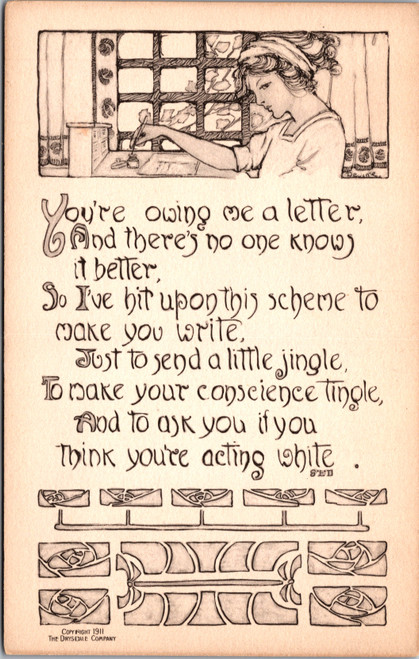 You're owing me a letter,
And there's no one knows
it better,
So I've hit upon this scheme to
make you write,
Just to send a little jingle,
To make your conscience tingle,
And to ask you if you
think you're acting white.
COPYRIGHT 1911
THE DRYSDALE COMPANY